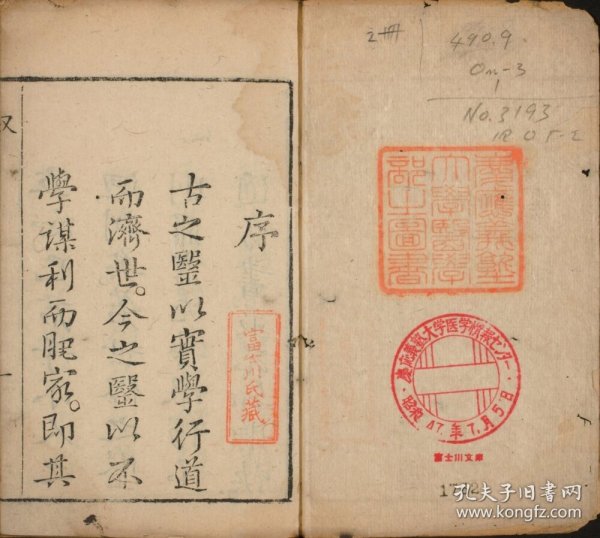 2冊
490.9
On-3
1
No.3193
慶應義塾
大學醫學
部之圖書
慶応義塾大学医学情報センター
昭和 47.年 7.月 5日
富士川文庫
序
富士川氏藏
古之醫以實學行道
而濟世。今之醫以不
學謀利而肥家。即其
孔夫子旧书网
www.kongfz.com